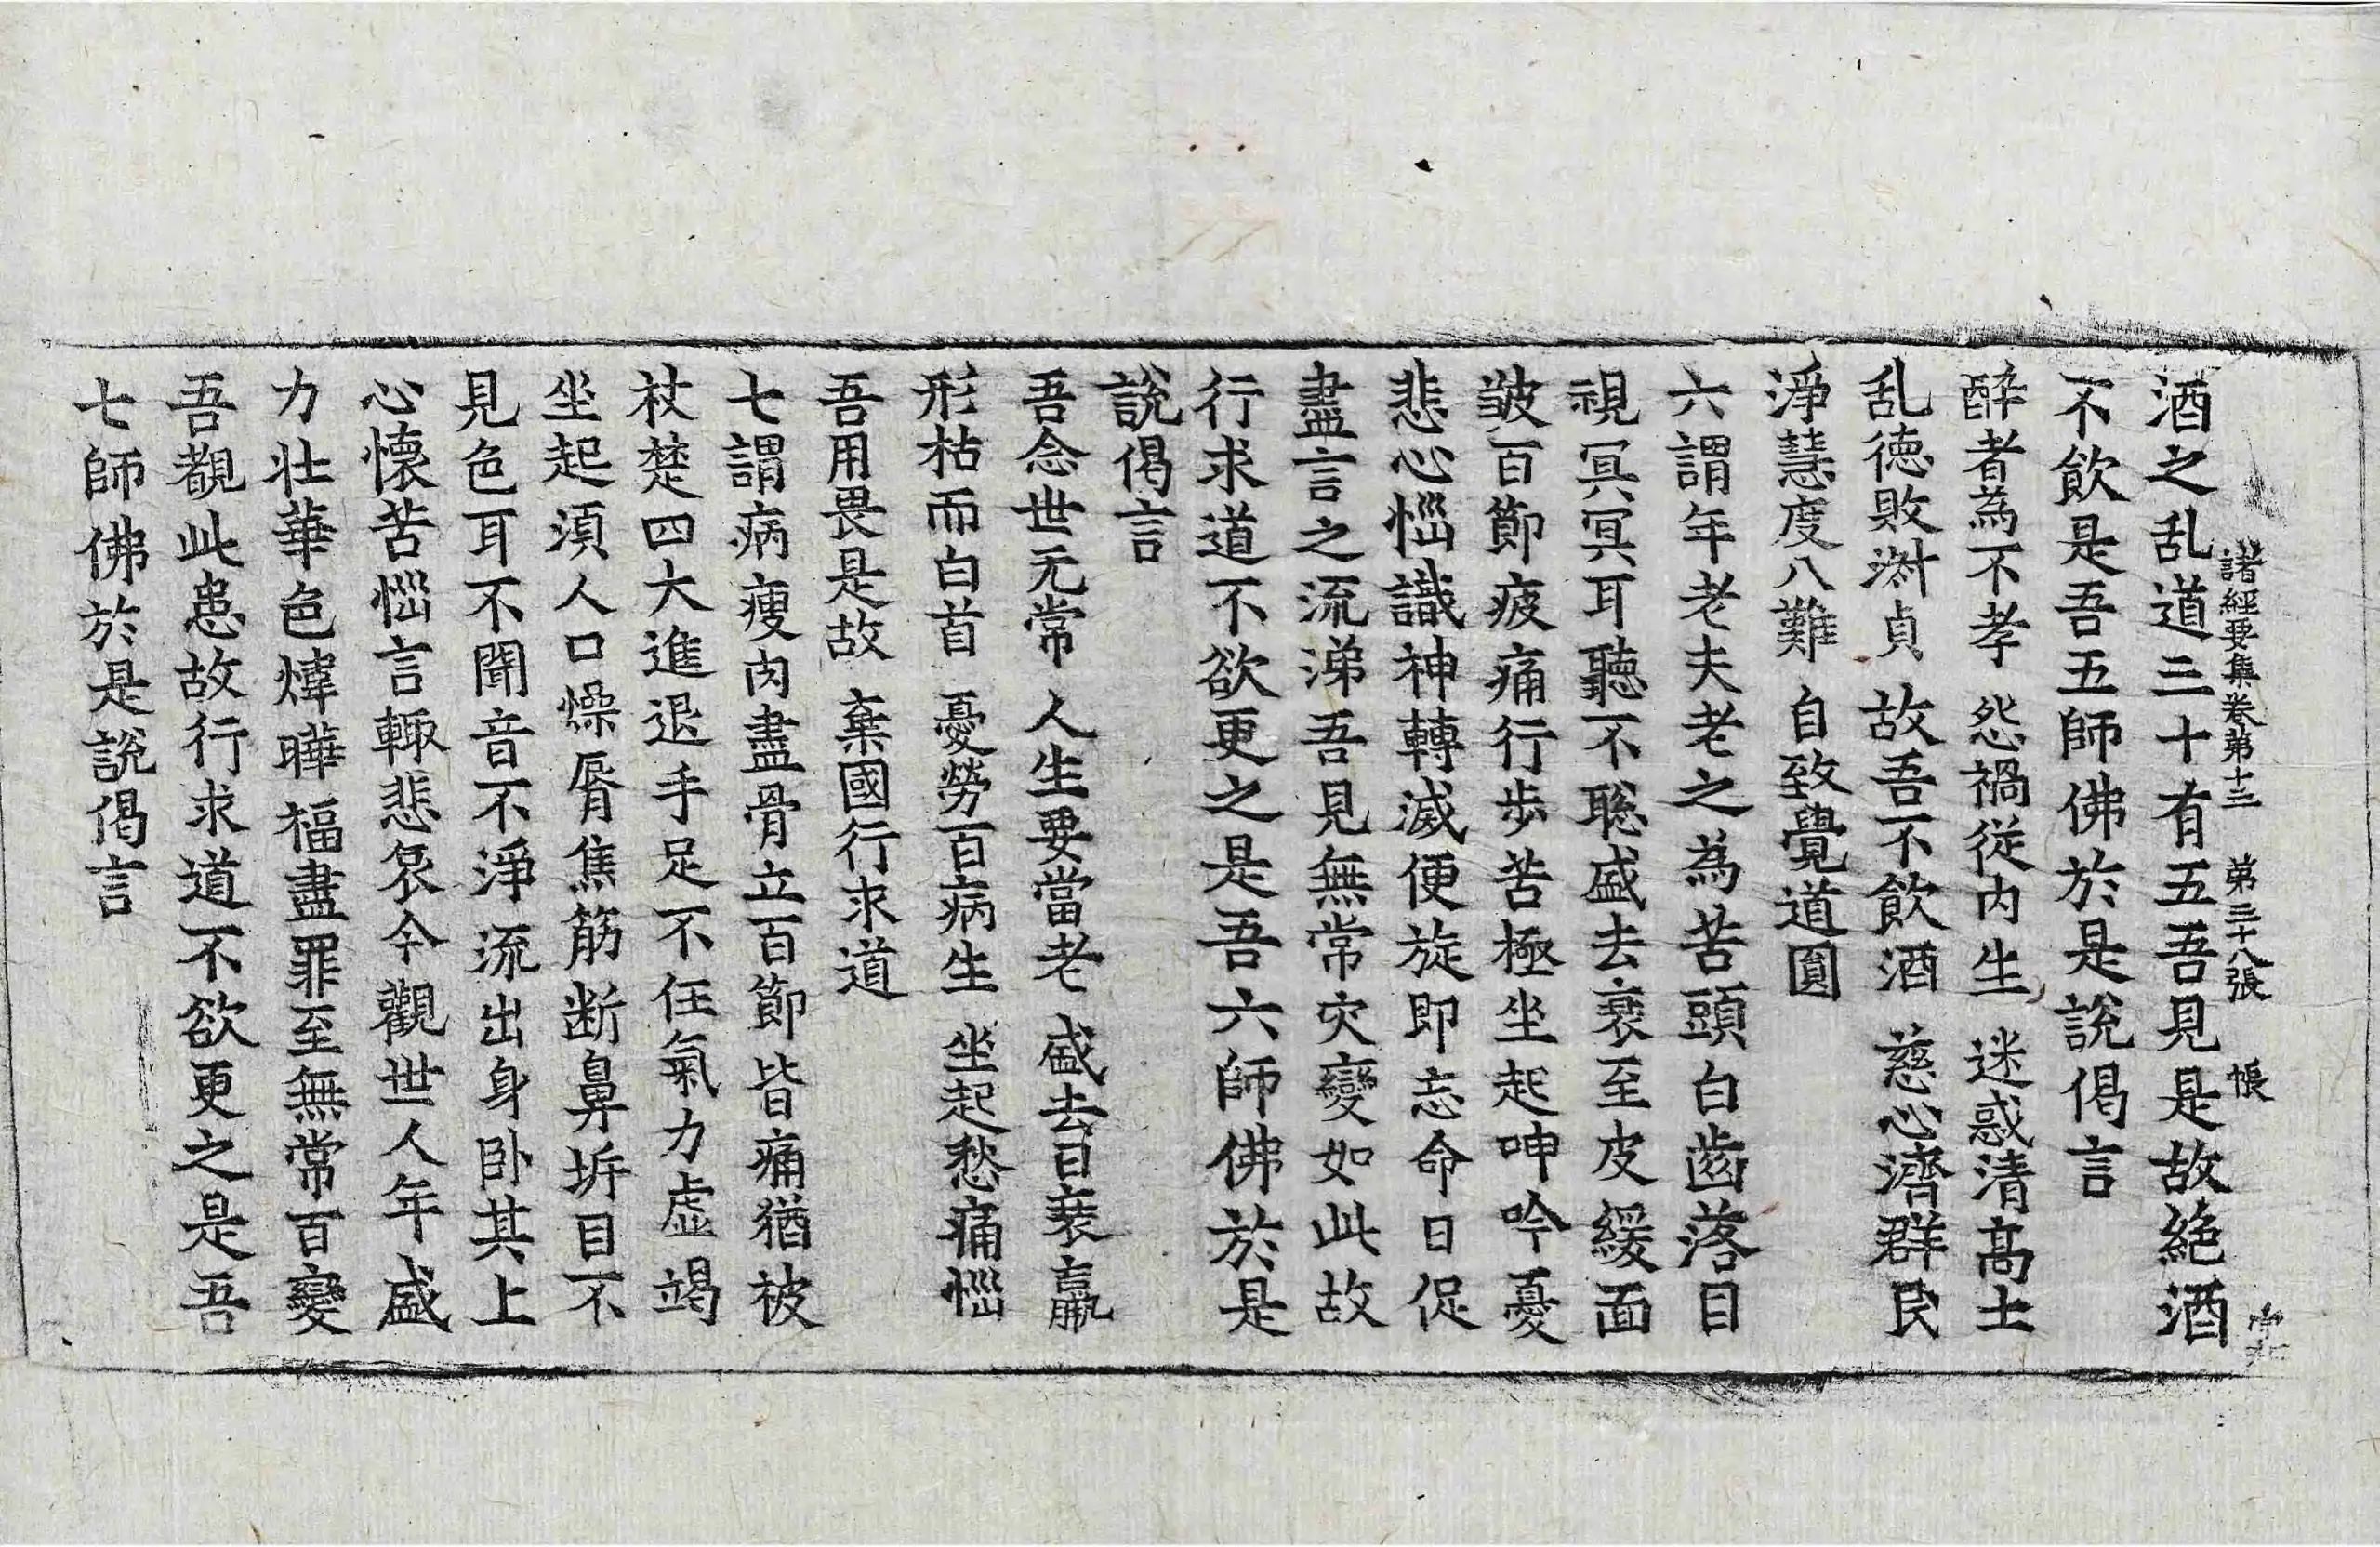 諸經要集卷第十三 第三十八張 帳
酒之乱道三十有五吾見是故絶酒
不飲是吾五師佛於是說偈言
醉者為不孝 怨禍從内生 迷惑清髙士
乱徳敗淋貞 故吾不飲酒 慈心濟群民
淨慧度八難 自致覺道圎
六謂年老夫老之為苦頭白齒落目
視冥冥耳聽不聡盛去衰至皮緩面
皺百節疲痛行步苦極坐起呻吟憂
悲心惱識神轉滅便旋即忘命日促
盡言之流涕吾見無常灾變如此故
行求道不欲更之是吾六師佛於是
說偈言
吾念世无常 人生要當老 盛去日衰羸
形枯而白首 憂勞百病生 坐起愁痛惱
吾用畏是故 棄國行求道
七謂病瘦肉盡骨立百節皆痛猶被
杖楚四大進退手足不任氣力虚竭
坐起湏人口燥脣焦筋断鼻坼目不
見色耳不聞音不淨流出身卧其上
心懷苦惱言輙悲哀今觀世人年盛
力壮華色煒曄福盡罪至無常百變
吾覩此患故行求道不欲更之是吾
七師佛於是說偈言